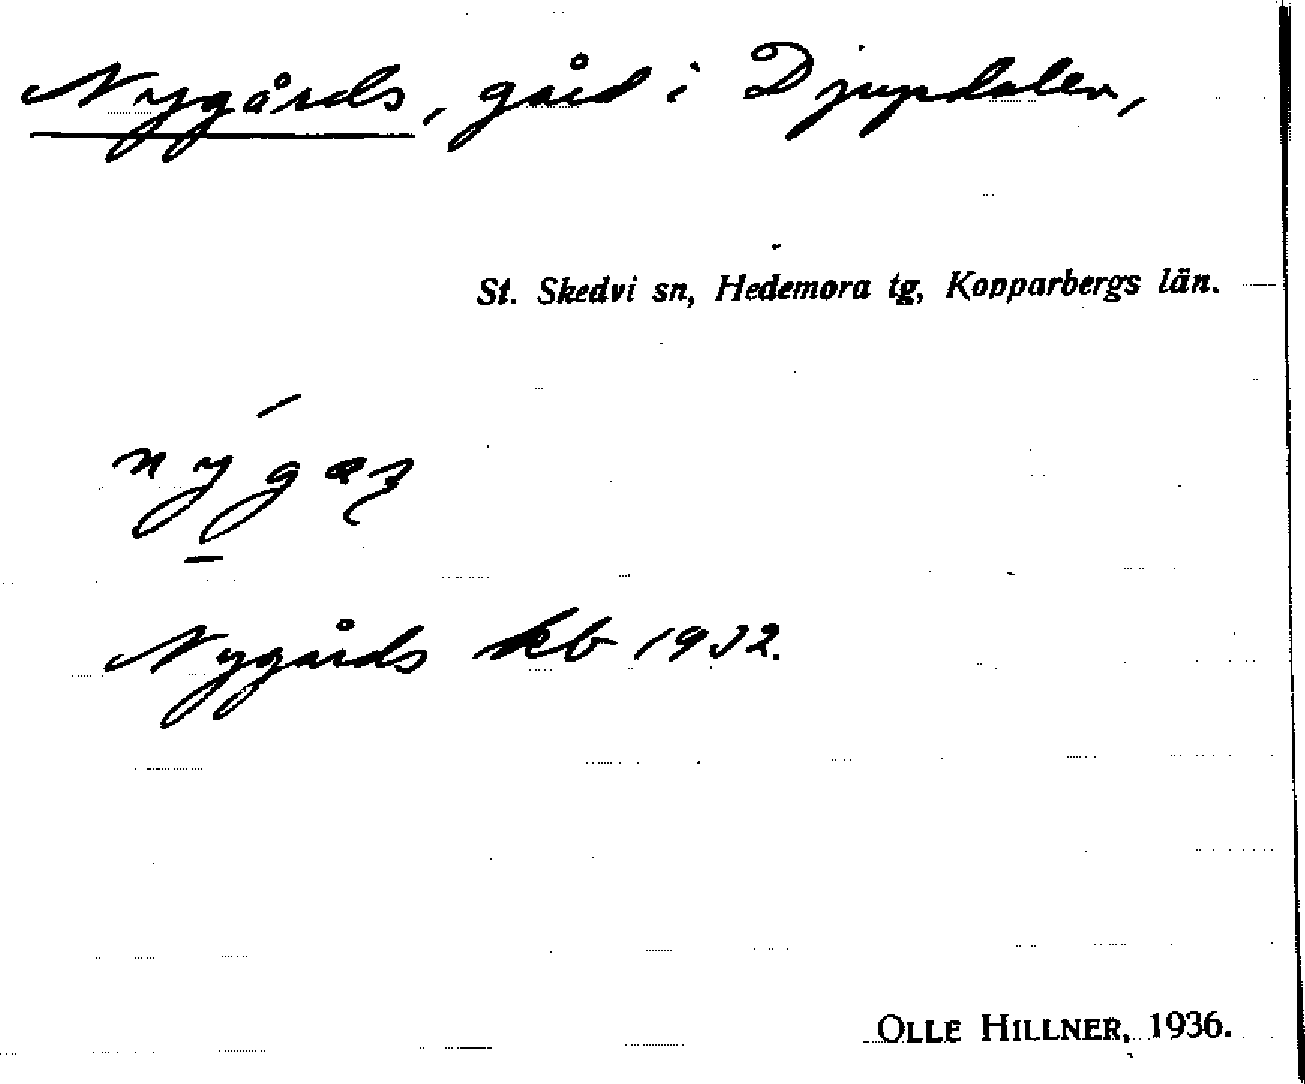 Nygårds, gård i Djupdalen,
St. Skedvi sn, Hedemora tg, Kopparbergs län.
Nygårds kb 1932.
OLLE HILLNER, 1936.